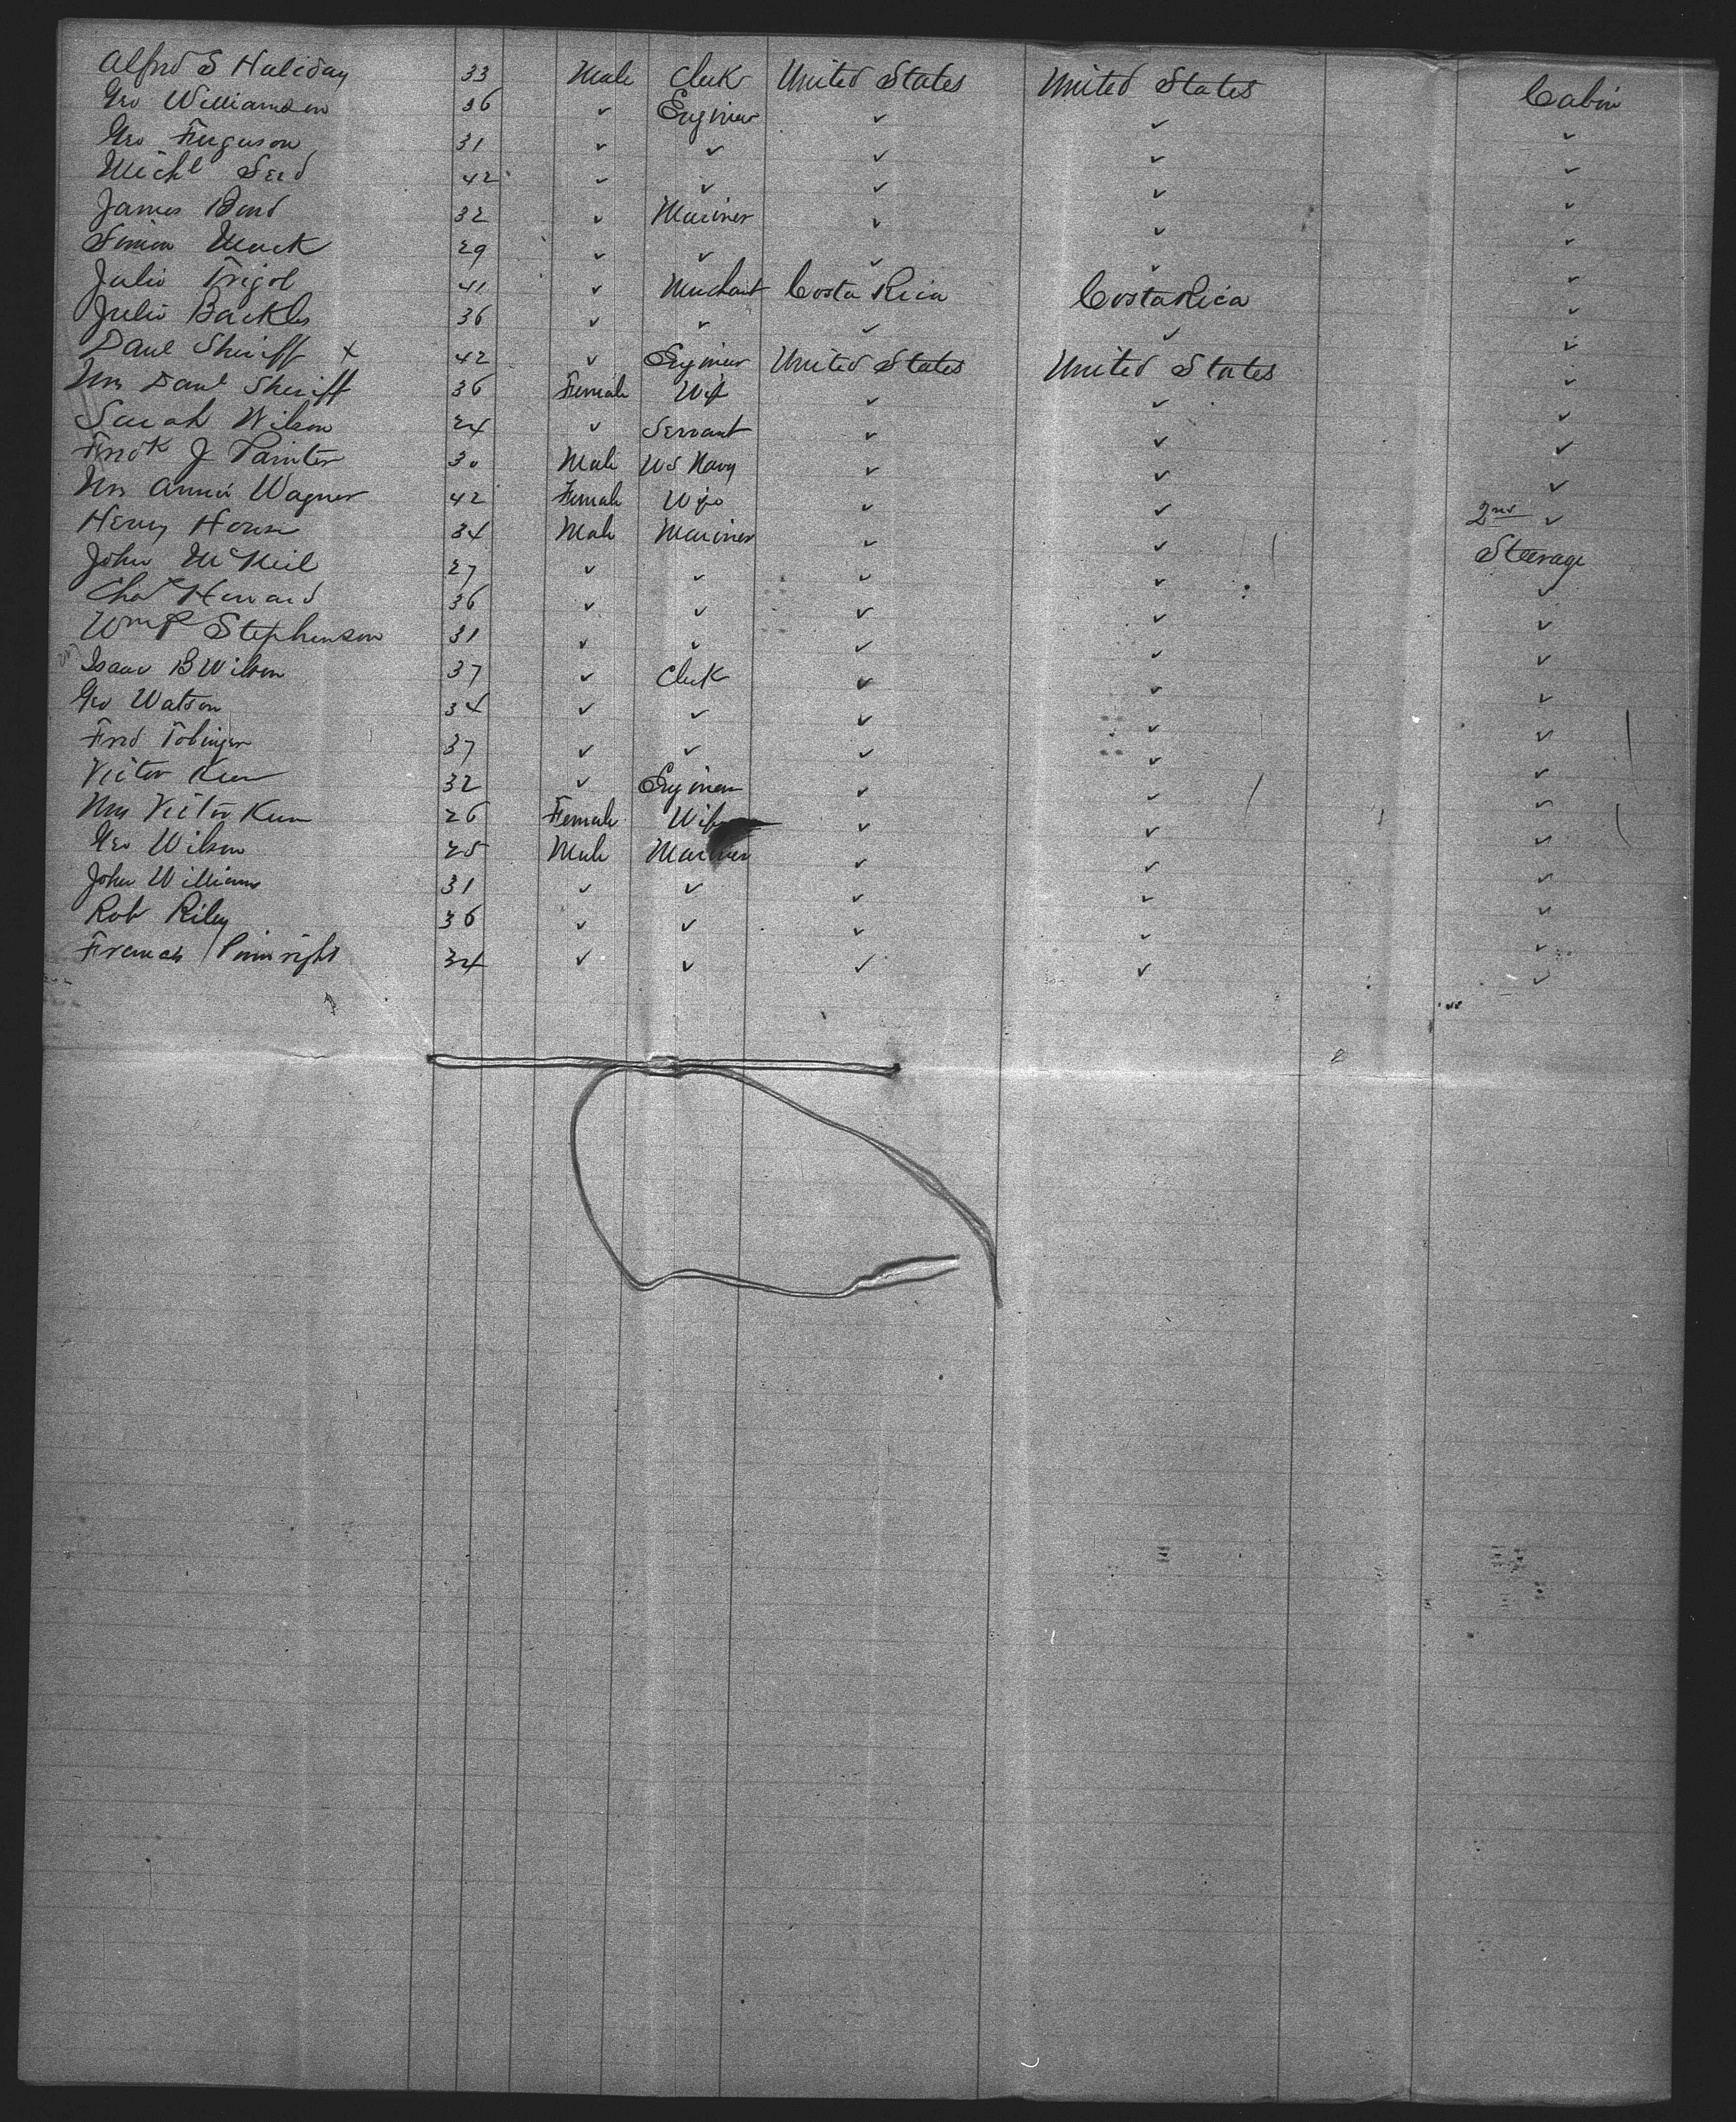 Alfred S Haliday 33 Male Clerk United States United States Cabin
Geo Williamson 36 ✓ Engineer ✓ ✓ ✓
Geo Ferguson 31 ✓ ✓ ✓ ✓ ✓
Michl Seed 42 ✓ ✓ ✓ ✓ ✓
James Bond 32 ✓ Mariner ✓ ✓ ✓
Simon Mack 29 ✓ ✓ ✓ ✓ ✓
Julio 41 ✓ Merchant Costa Rica Costa Rica ✓
Julio Backles 36 ✓ ✓ ✓ ✓ ✓
Danl Sheriff x 42 ✓ Engineer United States United States ✓
Mrs Danl Sheriff 36 Female Wife ✓ ✓ ✓
Sarah Wilson 24 ✓ Servant ✓ ✓ ✓
Fredk J Painter 30 Male US Navy ✓ ✓ ✓
Mrs Annie Wagner 42 Female Wife ✓ ✓ 2nd ✓
Henry House 34 Male Mariner ✓ ✓ Steerage
John McNeil 27 ✓ ✓ ✓ ✓ ✓
Chas Howard 36 ✓ ✓ ✓ ✓ ✓
Wm P Stephenson 31 ✓ ✓ ✓ ✓ ✓
Isaac B Wilson 37 ✓ Clerk ✓ ✓ ✓
Geo Watson 34 ✓ ✓ ✓ ✓ ✓
Fred 37 ✓ ✓ ✓ ✓ ✓
Victor Kern 32 ✓ Engineer ✓ ✓ ✓
Mrs Victor Kern 26 Female Wife ✓ ✓ ✓
Geo Wilson 25 Male Mariner ✓ ✓ ✓
John Williams 31 ✓ ✓ ✓ ✓ ✓
Robt Riley 36 ✓ ✓ ✓ ✓ ✓
Frances 34 ✓ ✓ ✓ ✓ ✓